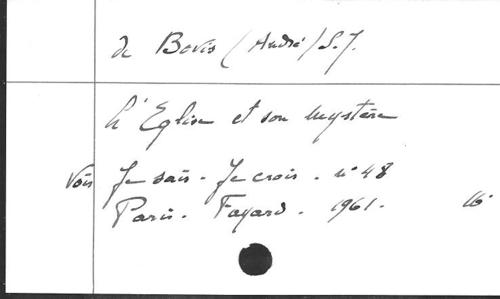 de Bovis (André) S.J.
L'Eglise et son mystère
Voir Je sais - Je crois - n° 48
Paris - Fayard - 1961 - 16°